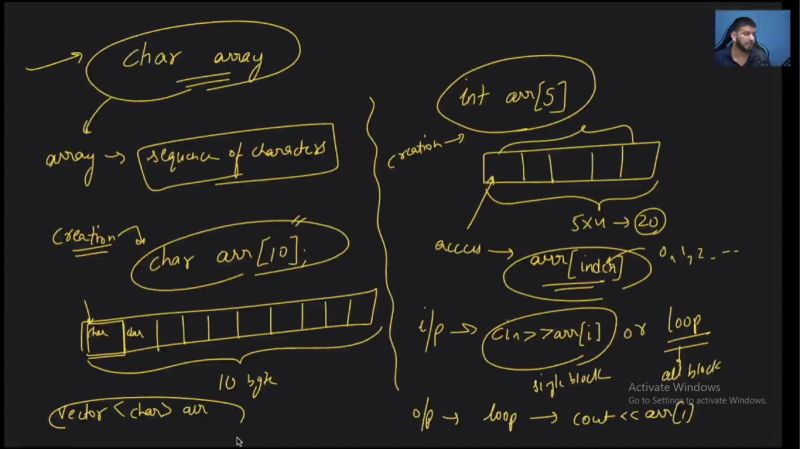 char array
array → sequence of characters
Creation →
char arr[10];
char char
10 byte
vector <char> arr
int arr[5]
Creation →
5x4 → 20
access → arr[index] 0, 1, 2 ...
i/p → cin>>arr[i] or loop
single block all block
o/p → loop → cout << arr[i]
Activate Windows
Go to Settings to activate Windows.